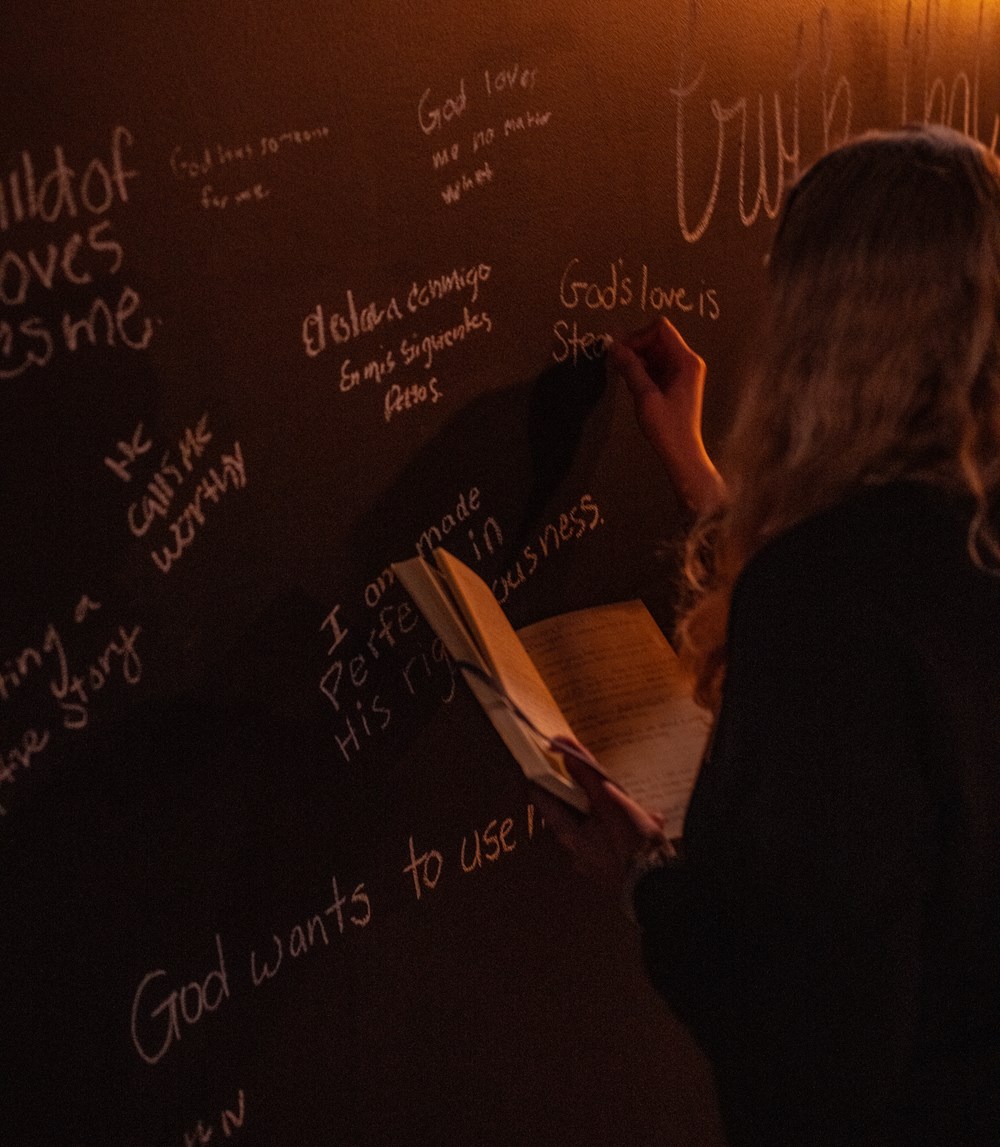 God loves
me no matter
what
Truth
God has someone
for me
oves
es me.
El estara conmigo
En mis siguientes
Pasos.
God's love is
Stea
HE
calls ME
worthy
I am made
Perfe in
His rig ousness.
ting a
story
God wants to use